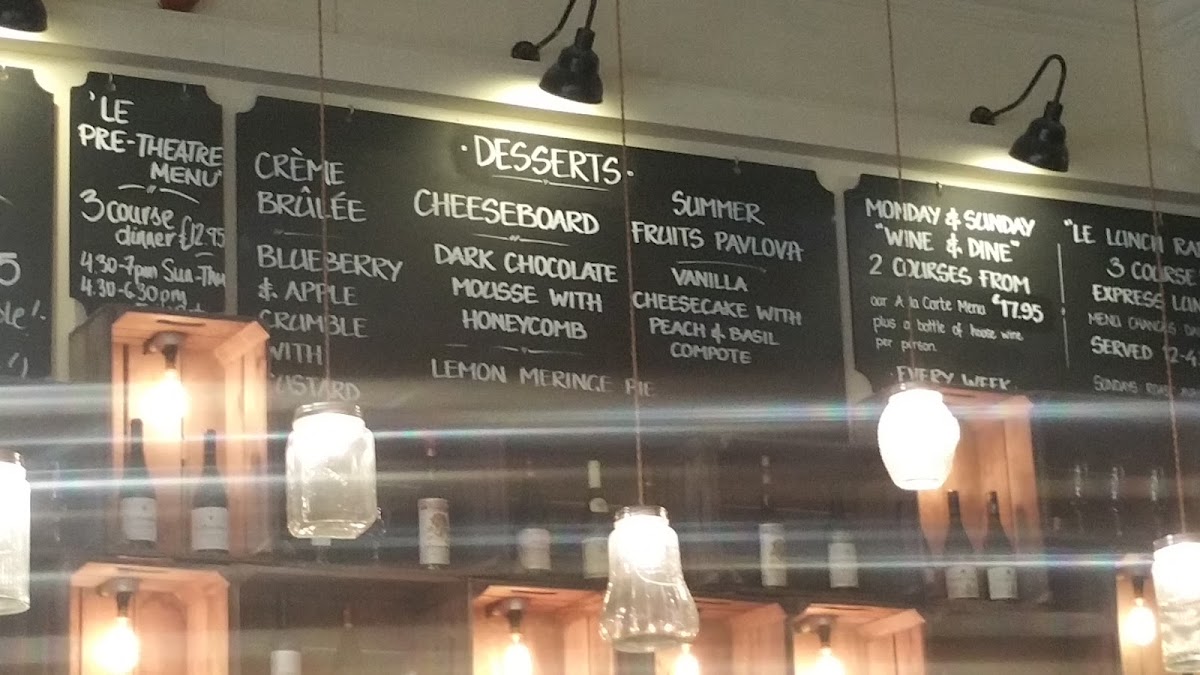 'LE
PRE-THEATRE
MENU'
3 course
dinner £12.95
4.30-7pm Sun-Thu
4.30-6.30pm
·DESSERTS·
CRÈME
BRÛLÉE
BLUEBERRY
& APPLE
CRUMBLE
WITH
CUSTARD
CHEESEBOARD
DARK CHOCOLATE
MOUSSE WITH
HONEYCOMB
LEMON MERINGE PIE
SUMMER
FRUITS PAVLOVA
VANILLA
CHEESECAKE WITH
PEACH & BASIL
COMPOTE
MONDAY & SUNDAY
"WINE & DINE"
2 COURSES FROM
our A la Carte Menu £17.95
plus a bottle of house wine
per person.
·EVERY WEEK·
"LE LUNCH
3 COURSE
EXPRESS
MENU CHANGES
SERVED 12-4
SUNDAYS